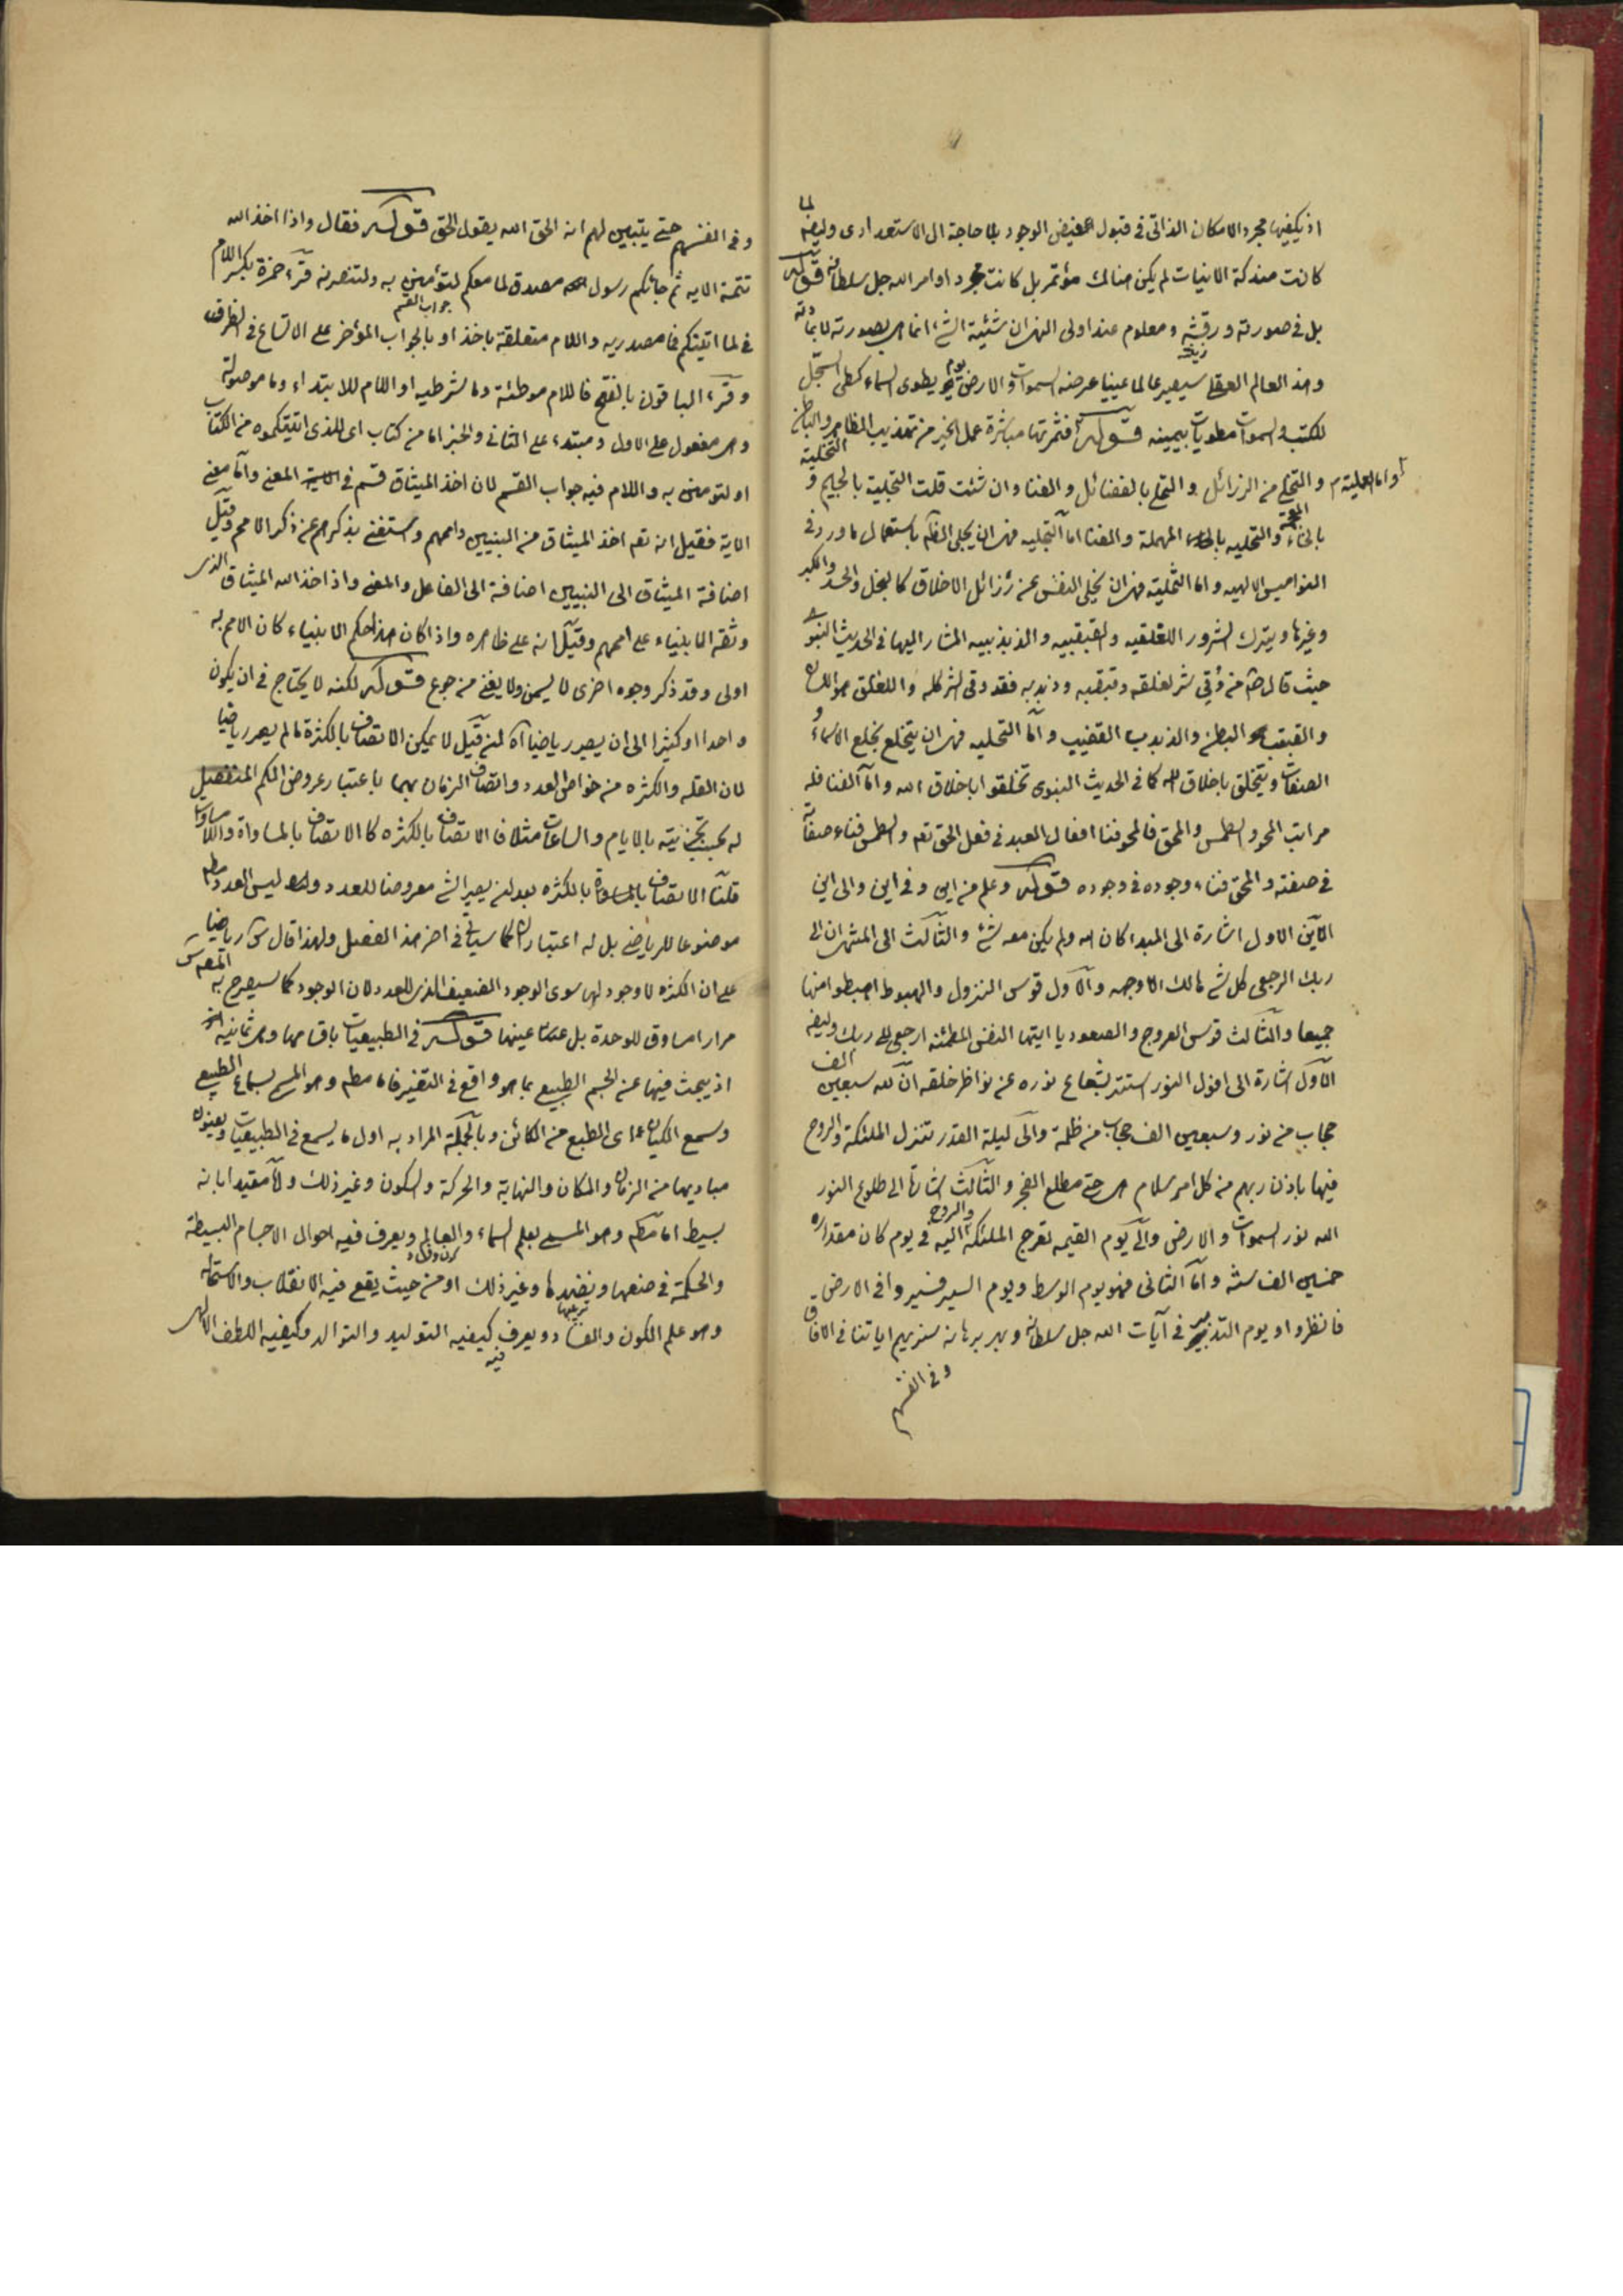 اذ يكفيها مجرد الامكان الذاتى فى قبول الفيض الوجود بلا حاجة الى الاستعدادى وايضا لما
كانت مندكة الانيات لم يكن هنالك مؤتمر بل كانت مجرد اوامر الله جل سلطانه قوله
بل فى صورته ورقيقته ومعلوم عند اولى النهى ان شيئية الشئ انما هى بصورته لا بمادته
وهذ العالم العقلى سيصير عالما عينيا عرضه السموات والارض يوم يطوى السماء كطى السجل
للكتب والسموات مطويات بيمينه قوله فثمرتها مباشرة عمل الخير من تهذيب الظاهر والباطن
و التخلى من الرزائل و التحلى بالفضائل والفنا وان شئت قلت التجلية بالجيم و التخلية
بالخاء المعجمة والتحليه بالحاء المهملة والفنا اما التجليه فهى ان يجلى الظاهر باستعمال ما ورد فى
النواميس الالهيه واما التخلية فهى ان يخلى النفس عن رزائل الاخلاق كالبخل والحسد والكبر
وغيرها ويترك الشرور اللقلقيه والقبقبيه والذبذبيه المشار اليها فى الحديث النبوى
حيث قال من وقى شر لقلقه وقبقبه وذبذبه فقد وقى الشر كله واللقلق هو اللسان
والقبقب البطن والذبذب القضيب واما التحليه فهى ان يتخلع بخلع الاسماء و
الصفات ويتخلق باخلاق الله كما فى الحديث النبوى تخلقوا باخلاق الله واما الفنا فله
مراتب المحو والطمس والمحق فالمحو فنا افعال العبد فى فعل الحق تعم والطمس فناء صفاته
فى صفته والمحق فناء وجوده فى وجوده قوله وعلم من اين وفى اين والى اين
الاين الاول اشارة الى المبدا كان الله ولم يكن معه شئ والثالث الى المنتهى ان الى
ربك الرجعى كل شئ هالك الا وجهه والاول قوس النزول والهبوط اهبطوا منها
جميعا والثالث قوس العروج والصعود يا ايتها النفس المطمئنه ارجعى الى ربك وايضا
الاول اشارة الى افول النور استتر بشعاع نوره عن نواظر خلقه ان لله سبعين الف
حجاب من نور وسبعين الف حجاب من ظلمة والى ليلة القدر تنزل الملئكة والروح
فيها باذن ربهم من كل امر سلام هى حتى مطلع الفجر والثالث اشارة الى طلوع النور
الله نور السموات والارض والى يوم القيمه تعرج الملئكة والروح اليه فى يوم كان مقداره
خمسين الف سنة واما الثانى فهو يوم الوسط ويوم السير فسيروا فى الارض
فانظروا و يوم التدبر فى آيات الله جل سلطانه وبهر برهانه سنريهم اياتنا فى الافاق
وفى انفسهم
وفى انفسهم حتى يتبين لهم انه الحق الله يقول الحق قوله فقال واذا اخذ الله
تتمة الايه ثم جائكم رسول مصدق لما معكم لتؤمنن به ولتنصرنه قرء حمزة بكسر اللام
فى لما اتيتكم فما مصدريه واللام متعلقة باخذ او بالجواب المؤخر على الاتساع فى الظرف
جواب القسم
وقرء الباقون بالفتح فاللام موطئة وما شرطيه او اللام للابتداء وما موصولة
وهى مفعول على الاول ومبتدء على الثانى والخبر اما من كتاب اى للذى اتيتكموه من الكتاب
او لتؤمنن به واللام فيه جواب القسم لان اخذ الميثاق قسم فى المعنى واما معنى
الاية فقيل انه تعم اخذ الميثاق من النبيين واممهم واستغنى بذكرهم عن ذكر الامم وقيل
اضافة الميثاق الى النبيين اضافة الى الفاعل والمعنى واذ اخذ الله الميثاق الذى
وثقه الانبياء على اممهم وقيل انه على ظاهره واذا كان هذا حكم الانبياء كان الامم به
اولى وقد ذكر وجوه اخرى لا يسمن ولا يغنى من جوع قوله لكنه لا يحتاج فى ان يكون
واحدا او كثيرا الى ان يصير رياضيا آه لئن قيل لا يمكن الاتصاف بالكثرة ما لم يصر رياضيا
لان القله والكثره من خواص العدد واتصاف الزمان بهما باعتبار عروض الكم المنفصل
له بحسب تجزيته بالايام والساعات مثلا فالاتصاف بالكثره كالاتصاف بالمساواة واللامساواة
قلنا الاتصاف بالكثره بعد لئن يصير الشئ معروضا للعدد وليس العدد مطم
موضوعا للرياضى بل له اعتبار ان كما سياتى فى اخر هذ الفصل ولهذا قال س رياضيا
على ان الكثره لا وجود لها سوى الوجود الضعيف الذى للعدد لان الوجود كما سيصرح به المصم
مرارا مساوق للوحدة بل عينها قوله فى الطبيعيات باقسامها وهى ثمانيه
اذ يبحث فيها عن الجسم الطبيعى بما هو واقع فى التغير فاما مطم وهو المسمى بسماع الطبيعى
وسمع الكيان اى الطبع من الكائن وبالجملة المراد به اول ما يسمع فى الطبيعيات ويعنون
مباديها من الزمان والمكان والنهاية والحركة والسكون وغير ذلك واما مقيدا بانه
بسيط اما مطم وهو المسمى بعلم السماء والعالم ويعرف فيه احوال الاجسام البسيطة
والحكمة فى صنعها ونضدها وغير ذلك او من حيث يقع فيه الانقلاب والاستحاله
وهو علم الكون والفساد ويعرف فيه كيفيه التوليد والتوالد وكيفيه اللطف الالهى